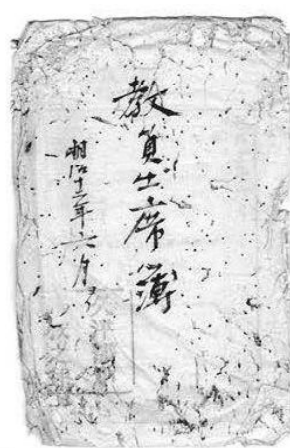 教員出席簿
明治十二年六月